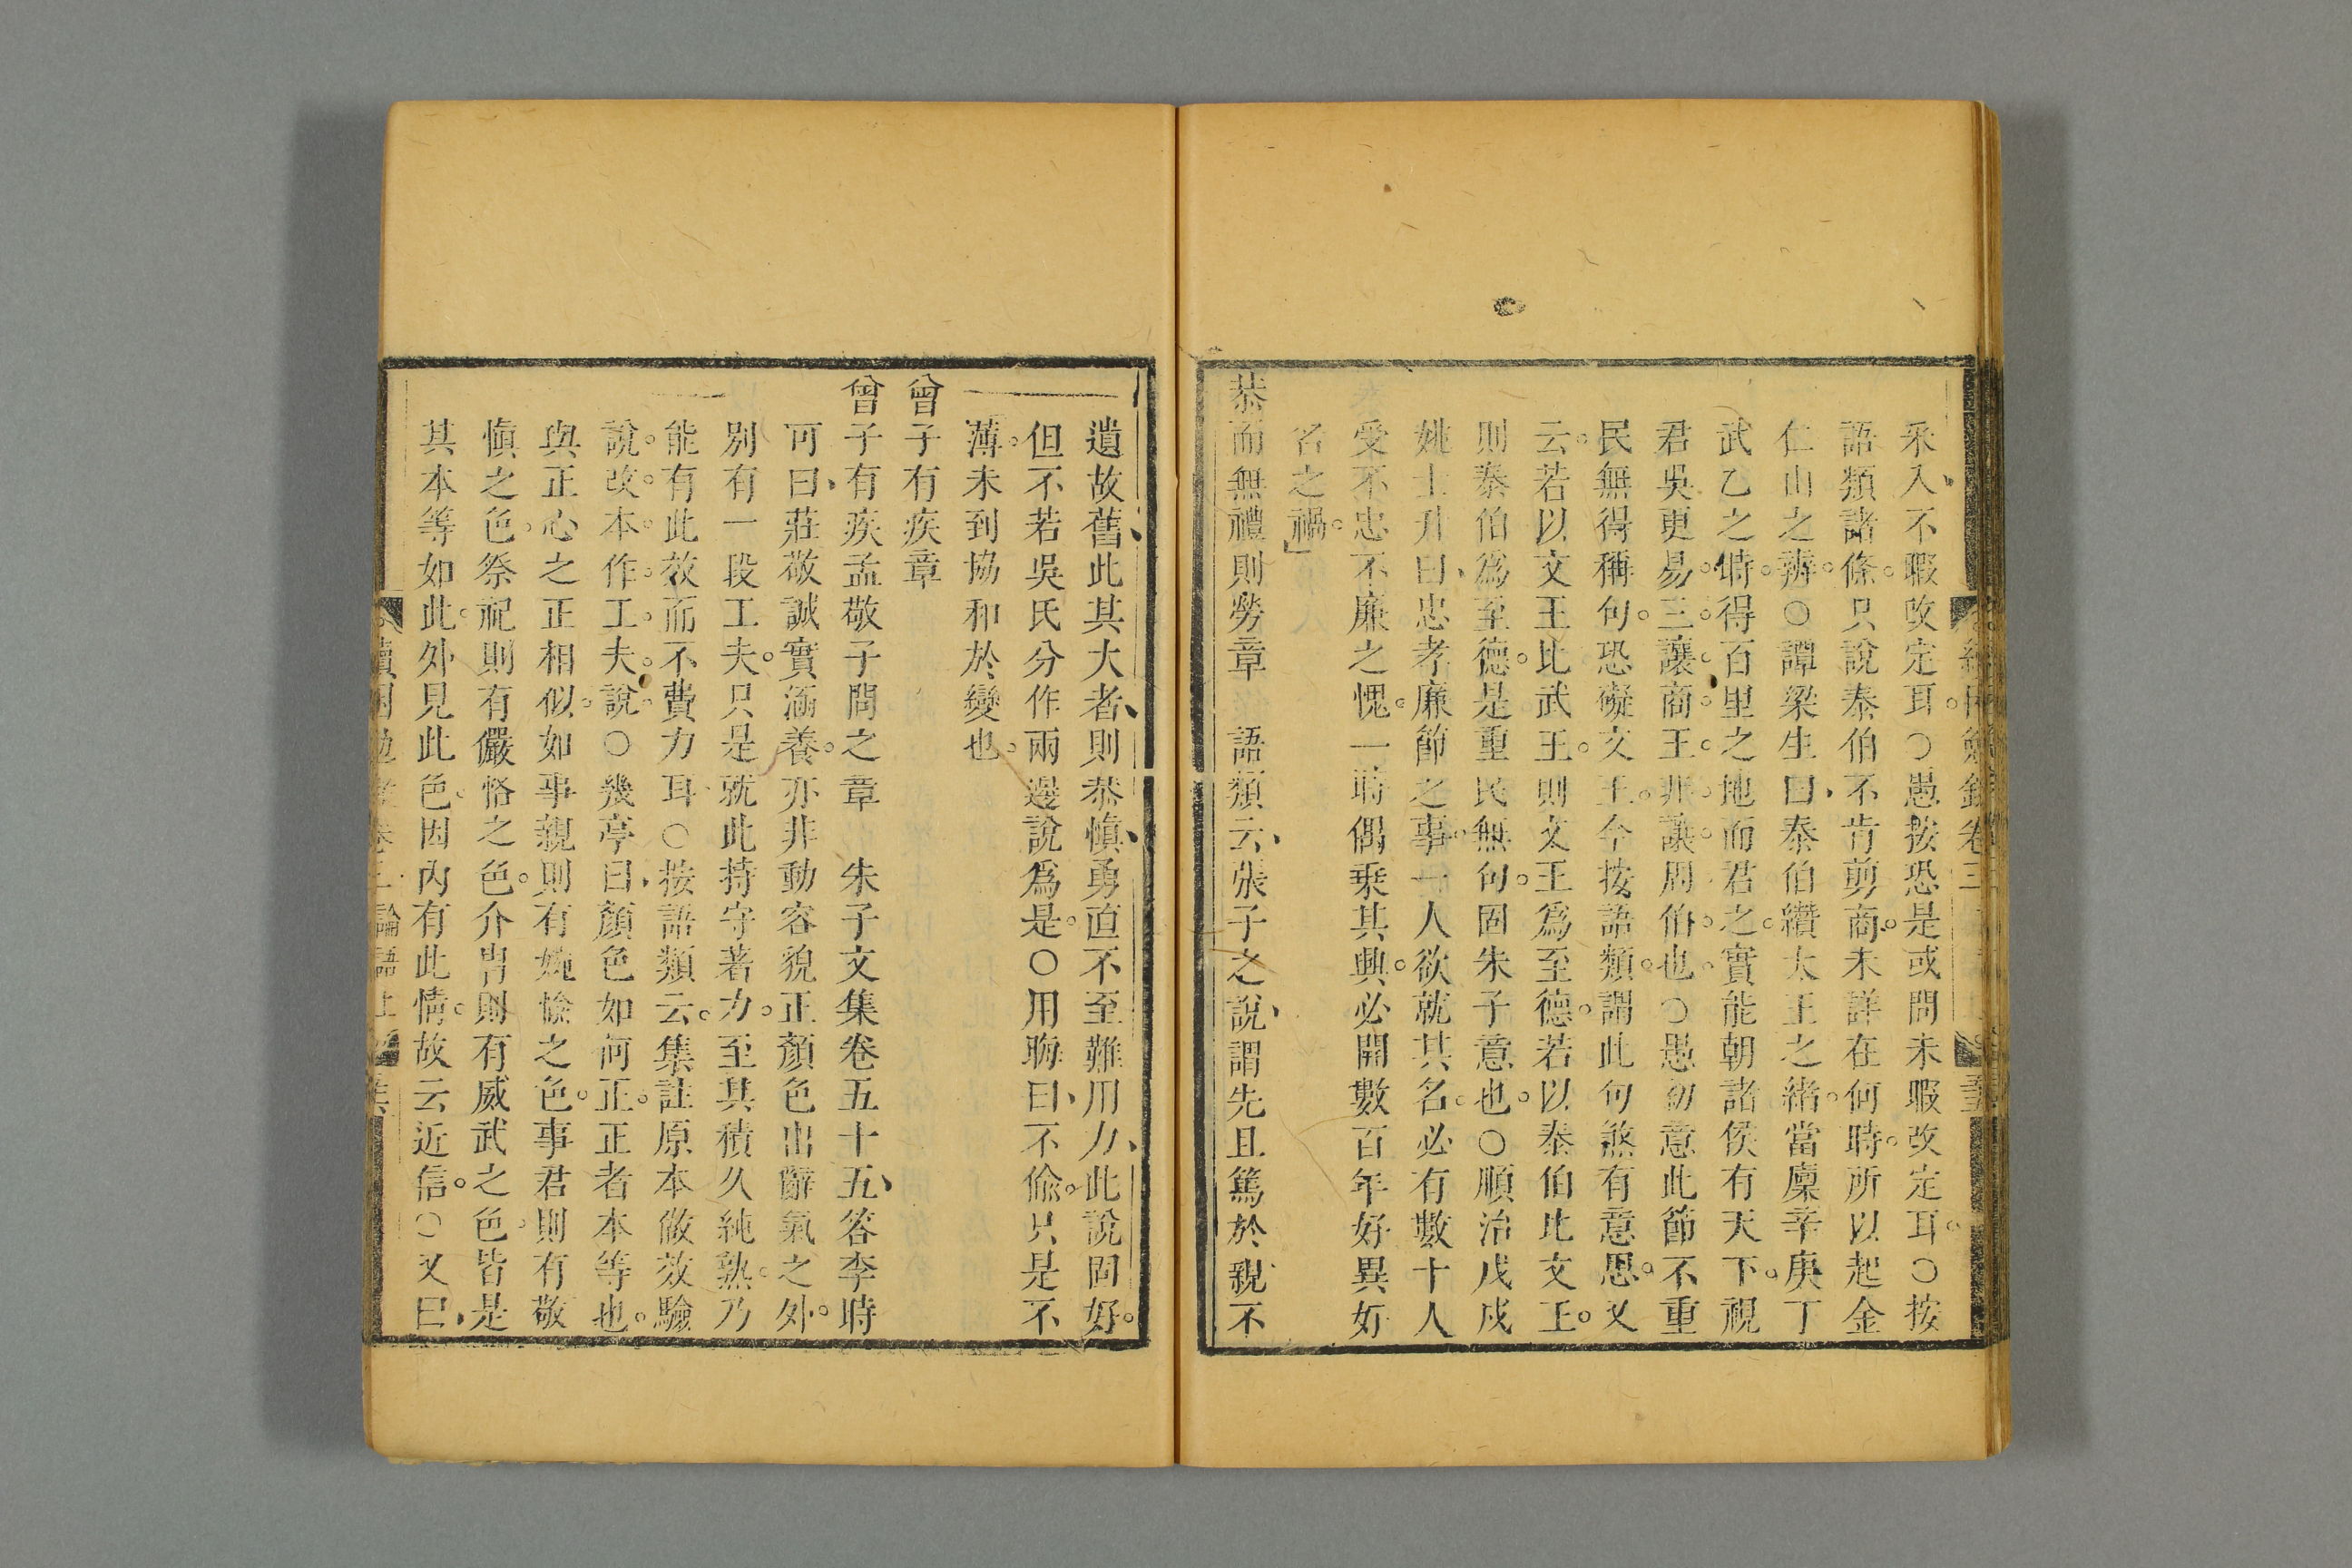 采入不暇改定耳○愚按恐是或問未暇改定耳○按
語類諸條只說泰伯不肯剪商未詳在何時所以起金
仁山之辨○譚梁生曰泰伯纘太王之緒當廩辛庚丁
武乙之時得百里之地而君之實能朝諸侯有天下視
君吳更易三讓商王非讓周伯也○愚初意此節不重
民無得稱句恐礙文王今按語類謂此句煞有意思又
云若以文王比武王則文王為至德若以泰伯比文王
則泰伯爲至德是重民無句固朱子意也○順治戊戌
姚士升曰忠孝廉節之事一人欲就其名必有數十人
受不忠不廉之愧一時偶乘其興必開數百年好異好
名之禍
恭而無禮則勞章 語類云張子之說謂先且篤於親不
遺故舊此其大者則恭慎勇直不至難用力此說固好
但不若吳氏分作兩邊說爲是○用晦曰不偷只是不
薄未到協和於變也
曾子有疾章
曾子有疾孟敬子問之章 朱子文集卷五十五答李時
可曰莊敬誠實涵養亦非動容貌正顏色出辭氣之外
別有一段工夫只是就此持守著力至其積久純熟乃
能有此效而不費力耳○按語類云集註原本做效驗
說改本作工夫說○幾亭曰顏色如何正正者本等也
與正心之正相似如事親則有婉愉之色事君則有敬
慎之色祭祀則有儼恪之色介冑則有威武之色皆是
其本等如此外見此色因內有此情故云近信○又曰